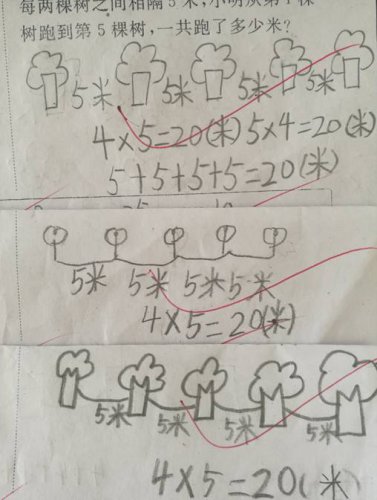 每两棵树之间相隔5米,小明从第1棵
树跑到第5棵树,一共跑了多少米?
5米 5米 5米 5米
4×5=20(米) 5×4=20(米)
5+5+5+5=20(米)
5米 5米 5米 5米
4×5=20(米)
5米 5米 5米 5米
4×5=20(米